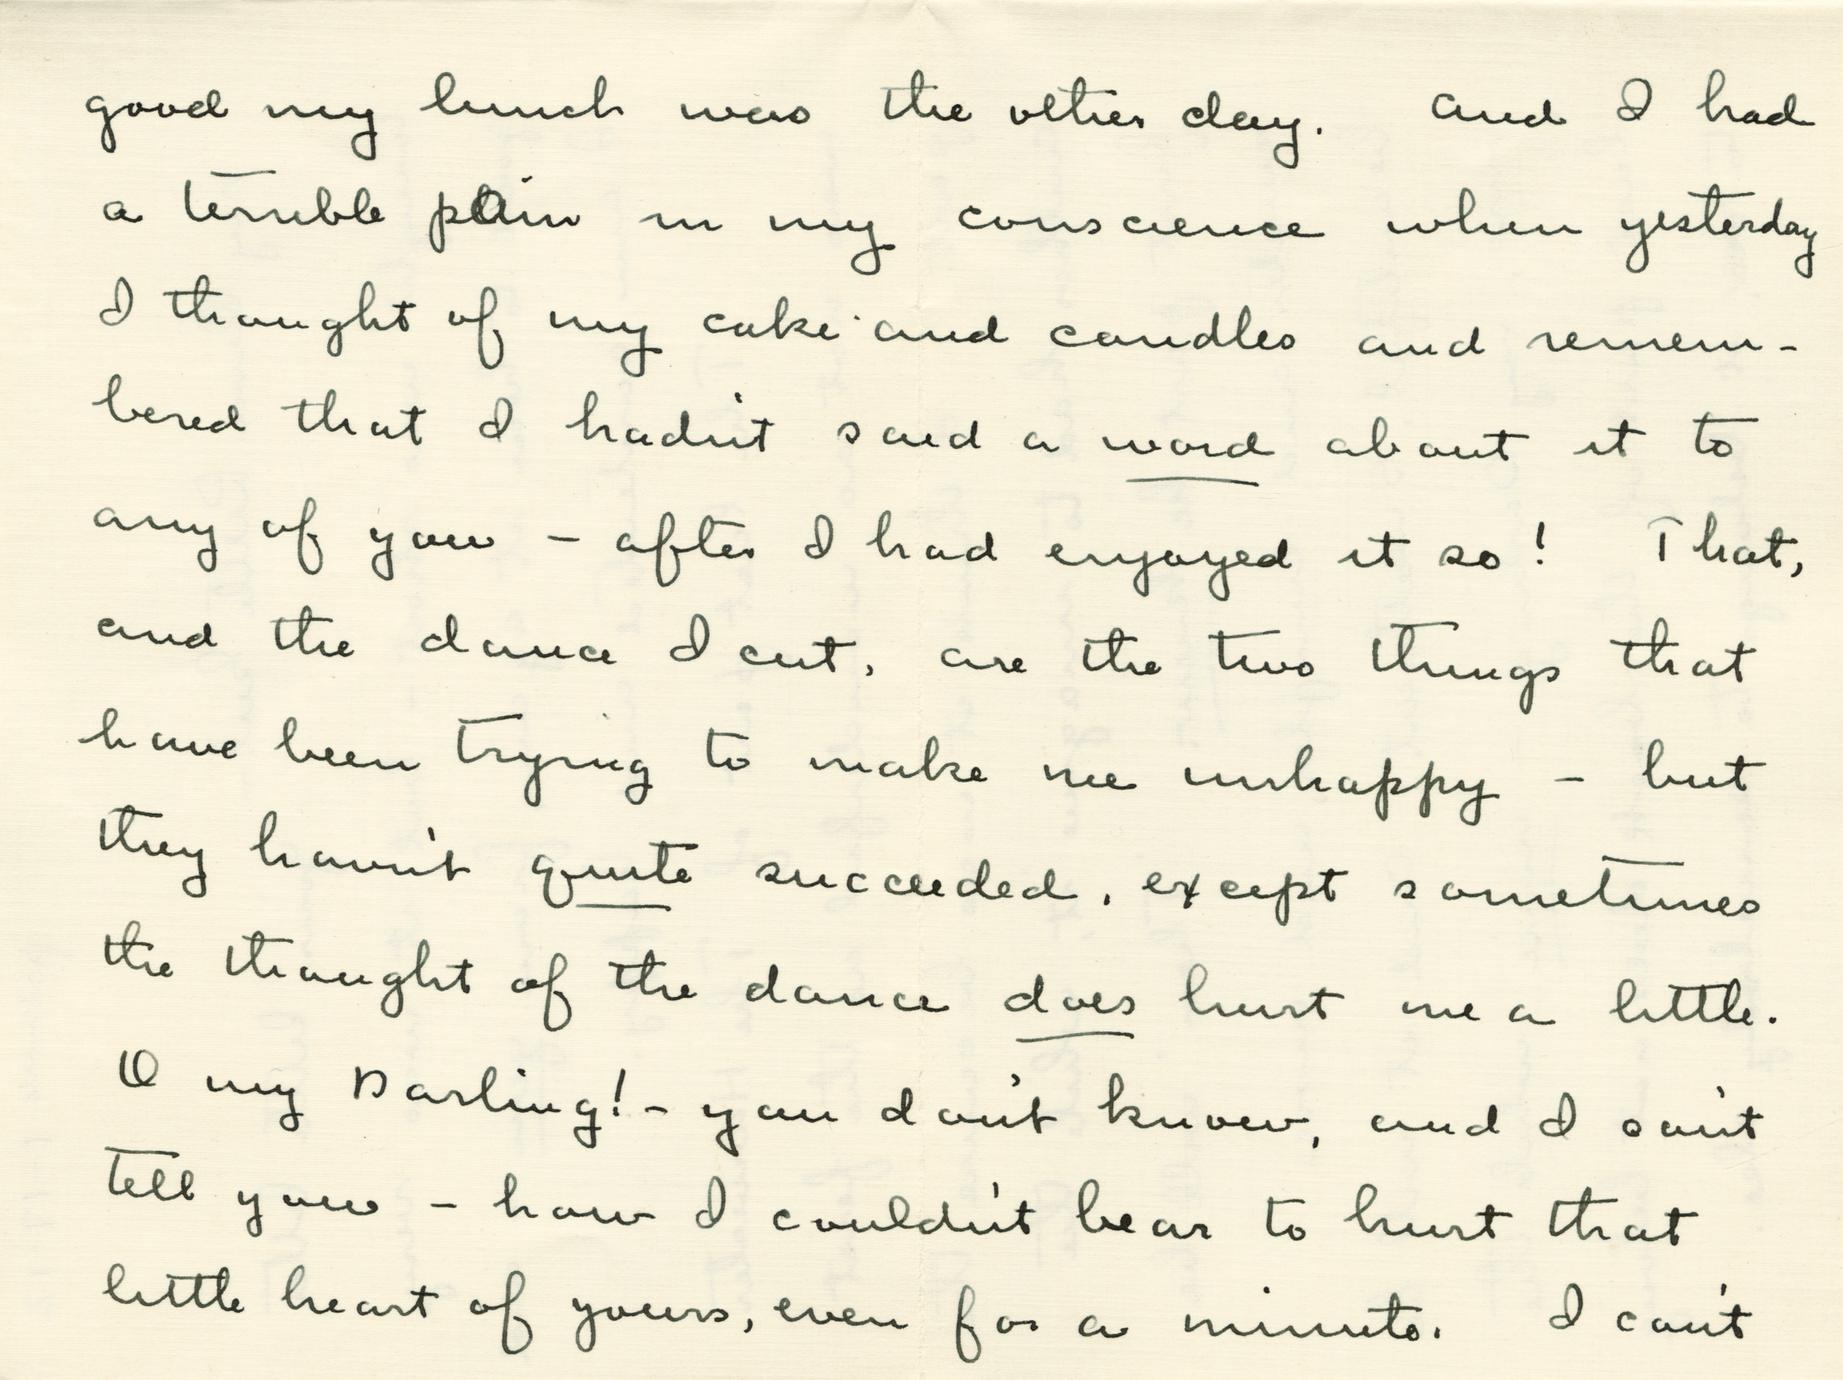 good my lunch was the other day. And I had
a terrible pain in my conscience when yesterday
I thought of my cake and candles and remem-
bered that I hadn't said a word about it to
any of you – after I had enjoyed it so! That,
and the dance I cut, are the two things that
have been trying to make me unhappy – but
they haven't quite succeeded, except sometimes
the thought of the dance does hurt me a little.
O my Darling! – you don't know, and I can't
tell you – how I couldn't bear to hurt that
little heart of yours, even for a minute. I can't